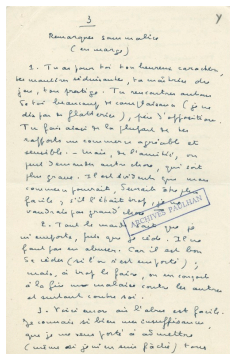 3
Remarques sans malice
(en marge)
1. Tu as pour toi ton heureux caractère,
tes manières séduisantes, ta maîtrise de
jeu, ton prestige. Tu rencontres autour
de toi beaucoup de complaisance (je ne
dis pas de flatterie), peu d'opposition.
Tu fais ainsi de la plupart de tes
rapports un commerce agréable et
sensible. Mais de l'amitié, on
peut demander autre chose, qui soit
plus grave. Il est évident que mon
commerce pourrait, devrait être plus
facile ; s'il l'était trop, je ne
vaudrais pas grand'chose
ARCHIVES PAULHAN
2. Tout le monde sait que je
m'emporte, puis que je cède. Il ne
faut pas en abuser. Car il est bon
de céder (si l'on s'est emporté),
mais, à trop le faire, on en conçoit
à la fin une malaise contre les autres
et surtout contre soi.
3. Voici encore où l'abus est facile.
Je connais si bien mes insuffisances
que je me sens porté à admettre
(même si je m'en suis fâché) tous